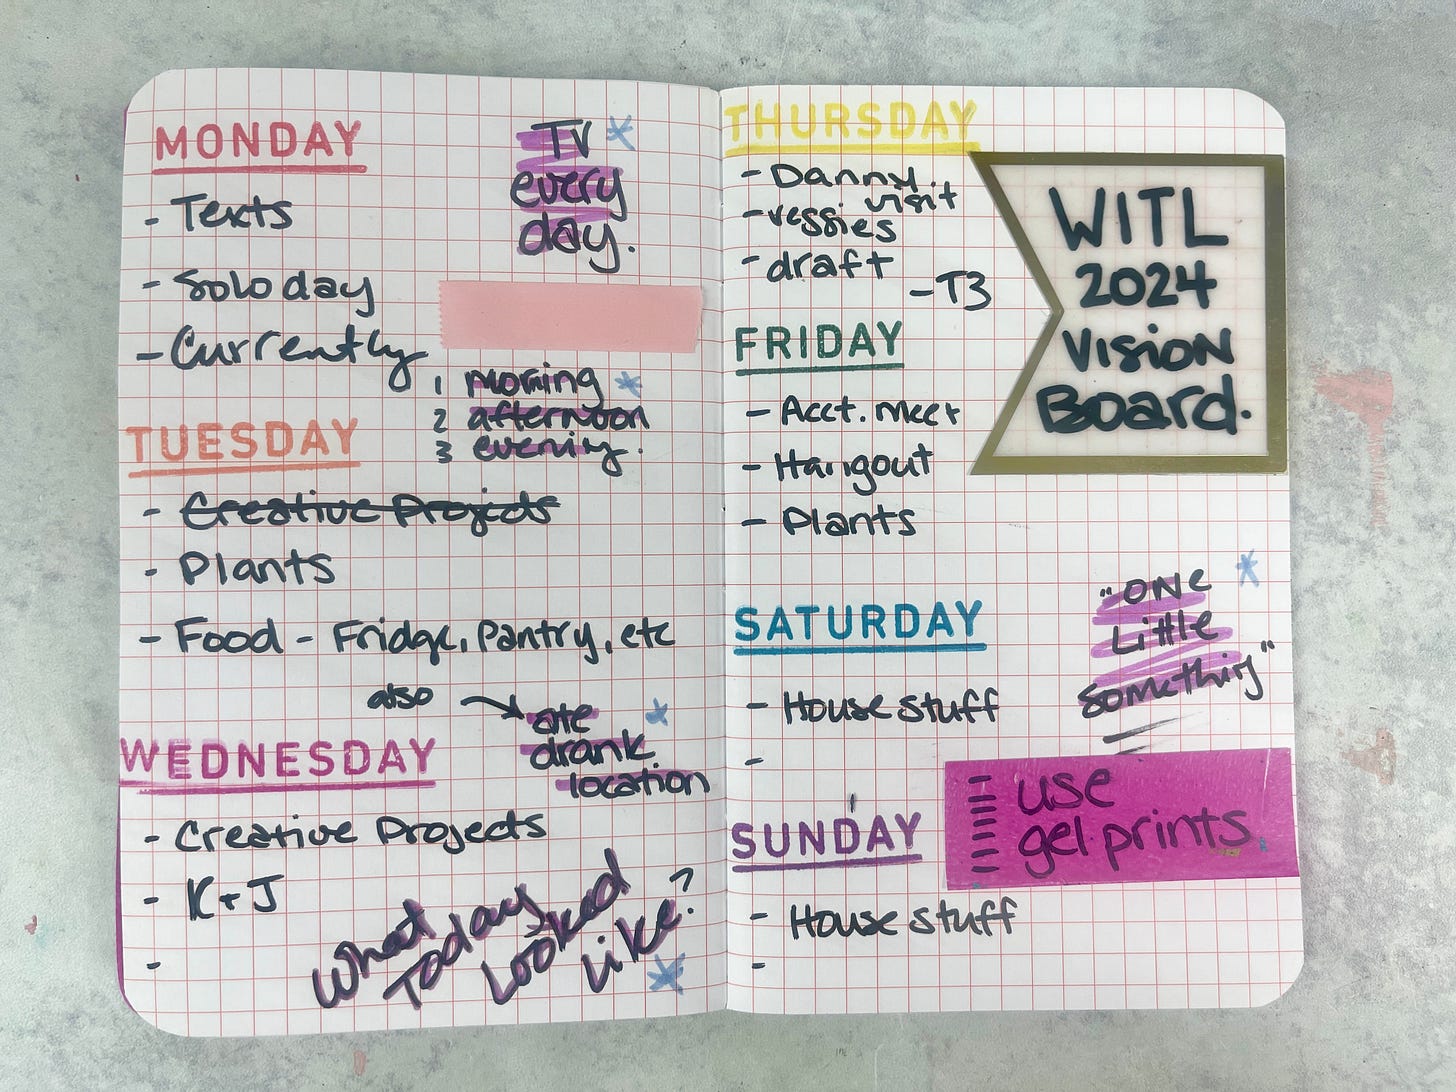 MONDAY
- Texts
- Solo day
- Currently
TV
every
day.
1 morning
2 afternoon
3 evening.
TUESDAY
- Creative Projects
- Plants
- Food - Fridge, Pantry, etc
also
ate
drank
location
WEDNESDAY
- Creative Projects
- K + J
-
What
Today
Looked
Like?
THURSDAY
- Danny visit
- veggies
- draft
- T3
WITL
2024
Vision
Board.
FRIDAY
- Acct. meet
- Hangout
- Plants
SATURDAY
- House stuff
-
"ONE
Little
something"
SUNDAY
- House stuff
-
use
gel prints.